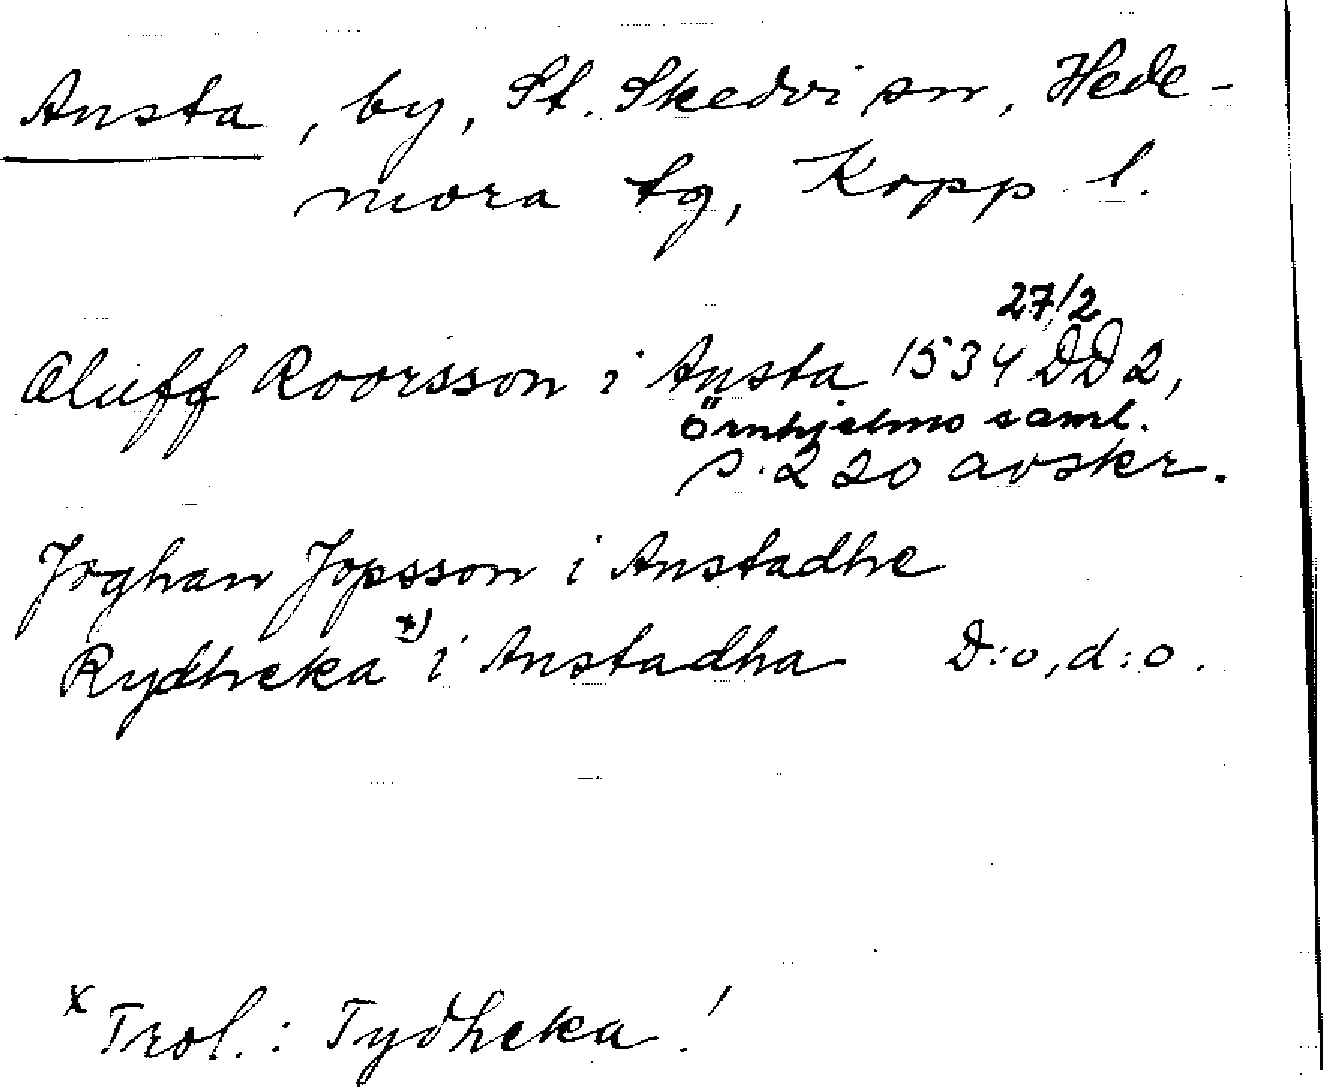 Ansta, by, St. Skedvi sn, Hede-
mora tg, Kopp l.
27/2
Oluff Roorsson i Ansta 1534 DD 2,
Örnhjelms saml.
s. 220 avskr.
Joghan Jopsson i Anstadhe
Rydheka x) i Anstadha D:o, d:o.
x Trol.: Tydheka!